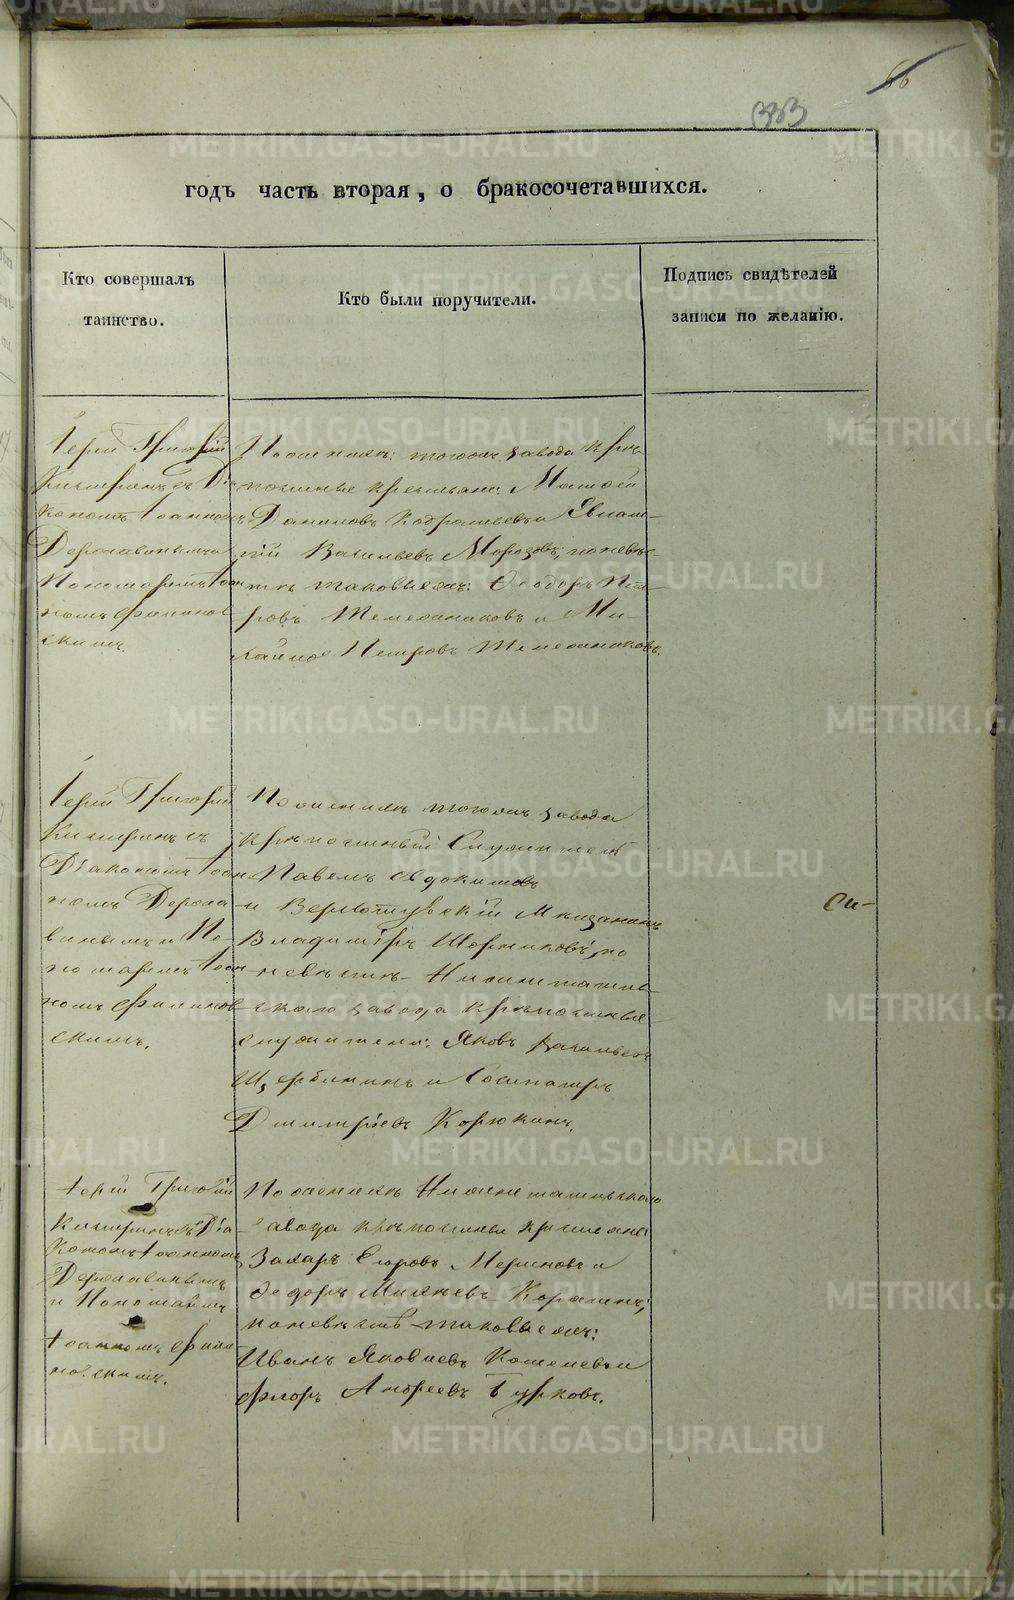 66
333
годъ часть вторая, о бракосочетавшихся.
Кто совершалъ
таинство.
Кто были поручители.
Подпись свидѣтелей
записи по желанію.
Іерей Григорій
Кипріянъ съ Діа
кономъ Іоанномъ
Державинымъ и
Пономаремъ Іоан
номъ Филинов
скимъ.
По женихѣ: тогожъ завода крѣ-
постные крестьяне: Матвей
Даниловъ Кодратьевъ и Евлам-
пій Васильевъ Морозовъ; по невѣс-
тѣ таковыежъ: Ѳеодоръ Пет-
ровъ Темежниковъ и Ми-
хайло Петровъ Темежниковъ.
Іерей Григорій
съ
Діакономъ Іоан
номъ Держа
винымъ и По-
номаремъ Іоан
номъ Филинов
скимъ.
По женихѣ тогожъ завода
крѣпостный Служитель
Павелъ Евдокимовъ
и Верхотурскій Мѣщанинъ
Владиміръ по
невѣстѣ Нижнетагиль-
скаго завода крѣпостные
служители: Яковъ Васильевъ
Щербининъ и Сосипатръ
Дмитріевъ Корюкинъ.
Си-
Іерей Григорій
съ Діа
кономъ Іоанномъ
Державинымъ
и Пономаремъ
Іоанномъ Фили
новскимъ.
По женихѣ Нижнетагильскаго
завода крѣпостные крестьяне
Захаръ Егоровъ Мериновъ и
Ѳедоръ Коралинъ;
по невѣстѣ таковыежъ:
Иванъ Яковлевъ Кошелевъ и
Флоръ Андреевъ Бурковъ.
METRIKI.GASO-URAL.RU